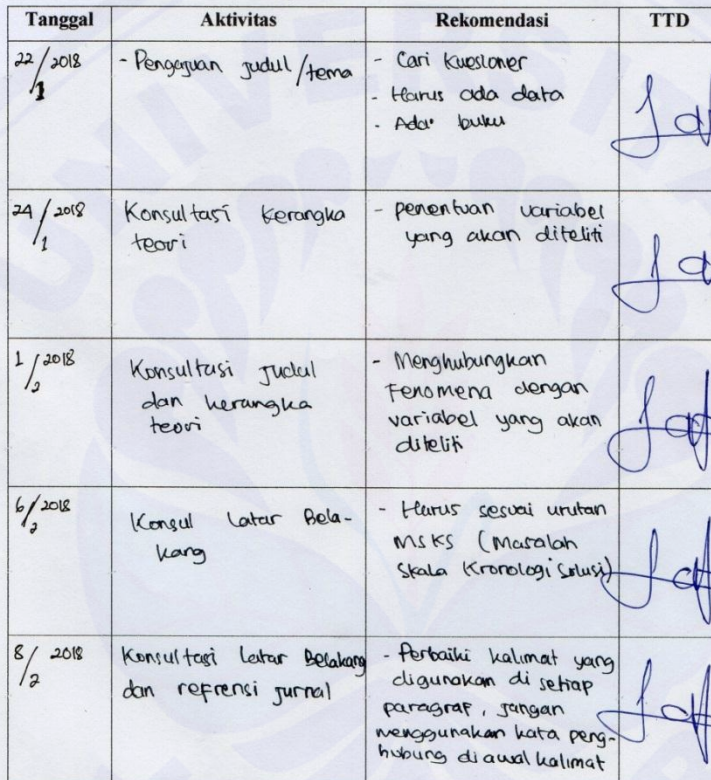 Tanggal Aktivitas Rekomendasi TTD
22/1 2018 - Pengajuan judul/tema - Cari Kuesioner
- Harus ada data
- Ada buku
24/1 2018 Konsultasi Kerangka - penentuan variabel
teori yang akan diteliti
1/2 2018 Konsultasi Judul - Menghubungkan
dan kerangka Fenomena dengan
teori variabel yang akan
diteliti
6/2 2018 Konsul Latar Bela- - Harus sesuai urutan
kang MSKS (Masalah
Skala Kronologi Solusi)
8/2 2018 Konsultasi Latar Belakang - Perbaiki kalimat yang
dan refrensi jurnal digunakan di setiap
paragrap, jangan
menggunakan kata peng-
hubung di awal kalimat
UNIVERSITA